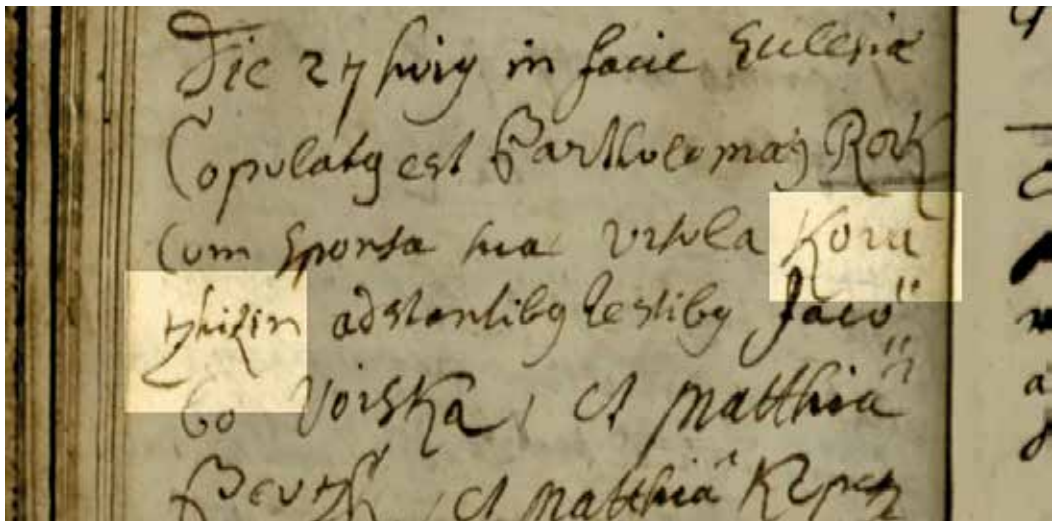 Die 27 huig in facie Ecclesiæ
Copulatg est Bartholomæg Rork
Cum Sponsa sua Ursula Koru
adstantibg testibg Jaco"
bo Voiska, et Matthia"
et Matthiâ